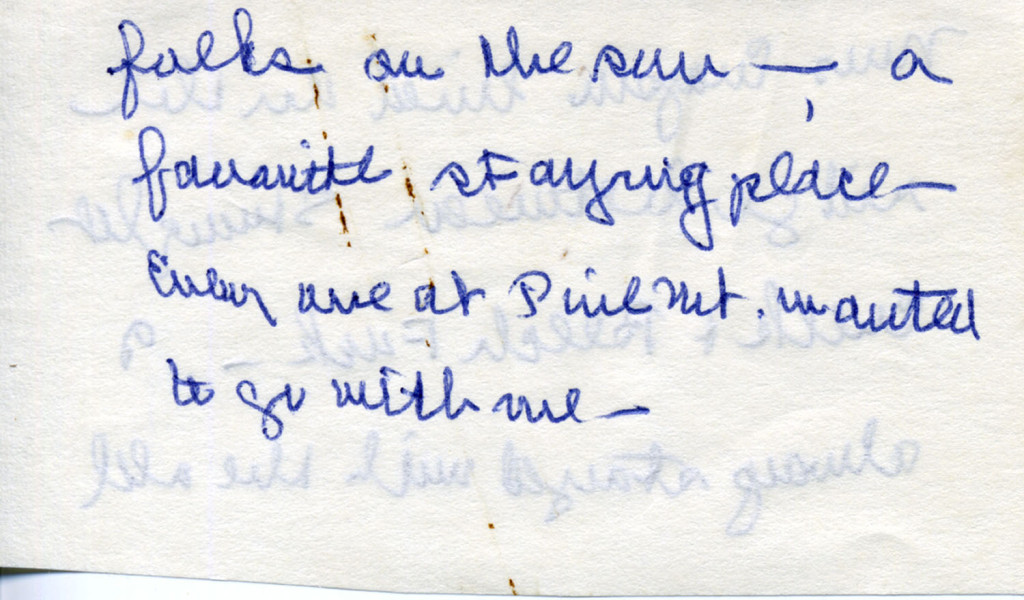 folks on the run — a
favorite staying place —
Every one at Pine Mt. wanted
to go with me —